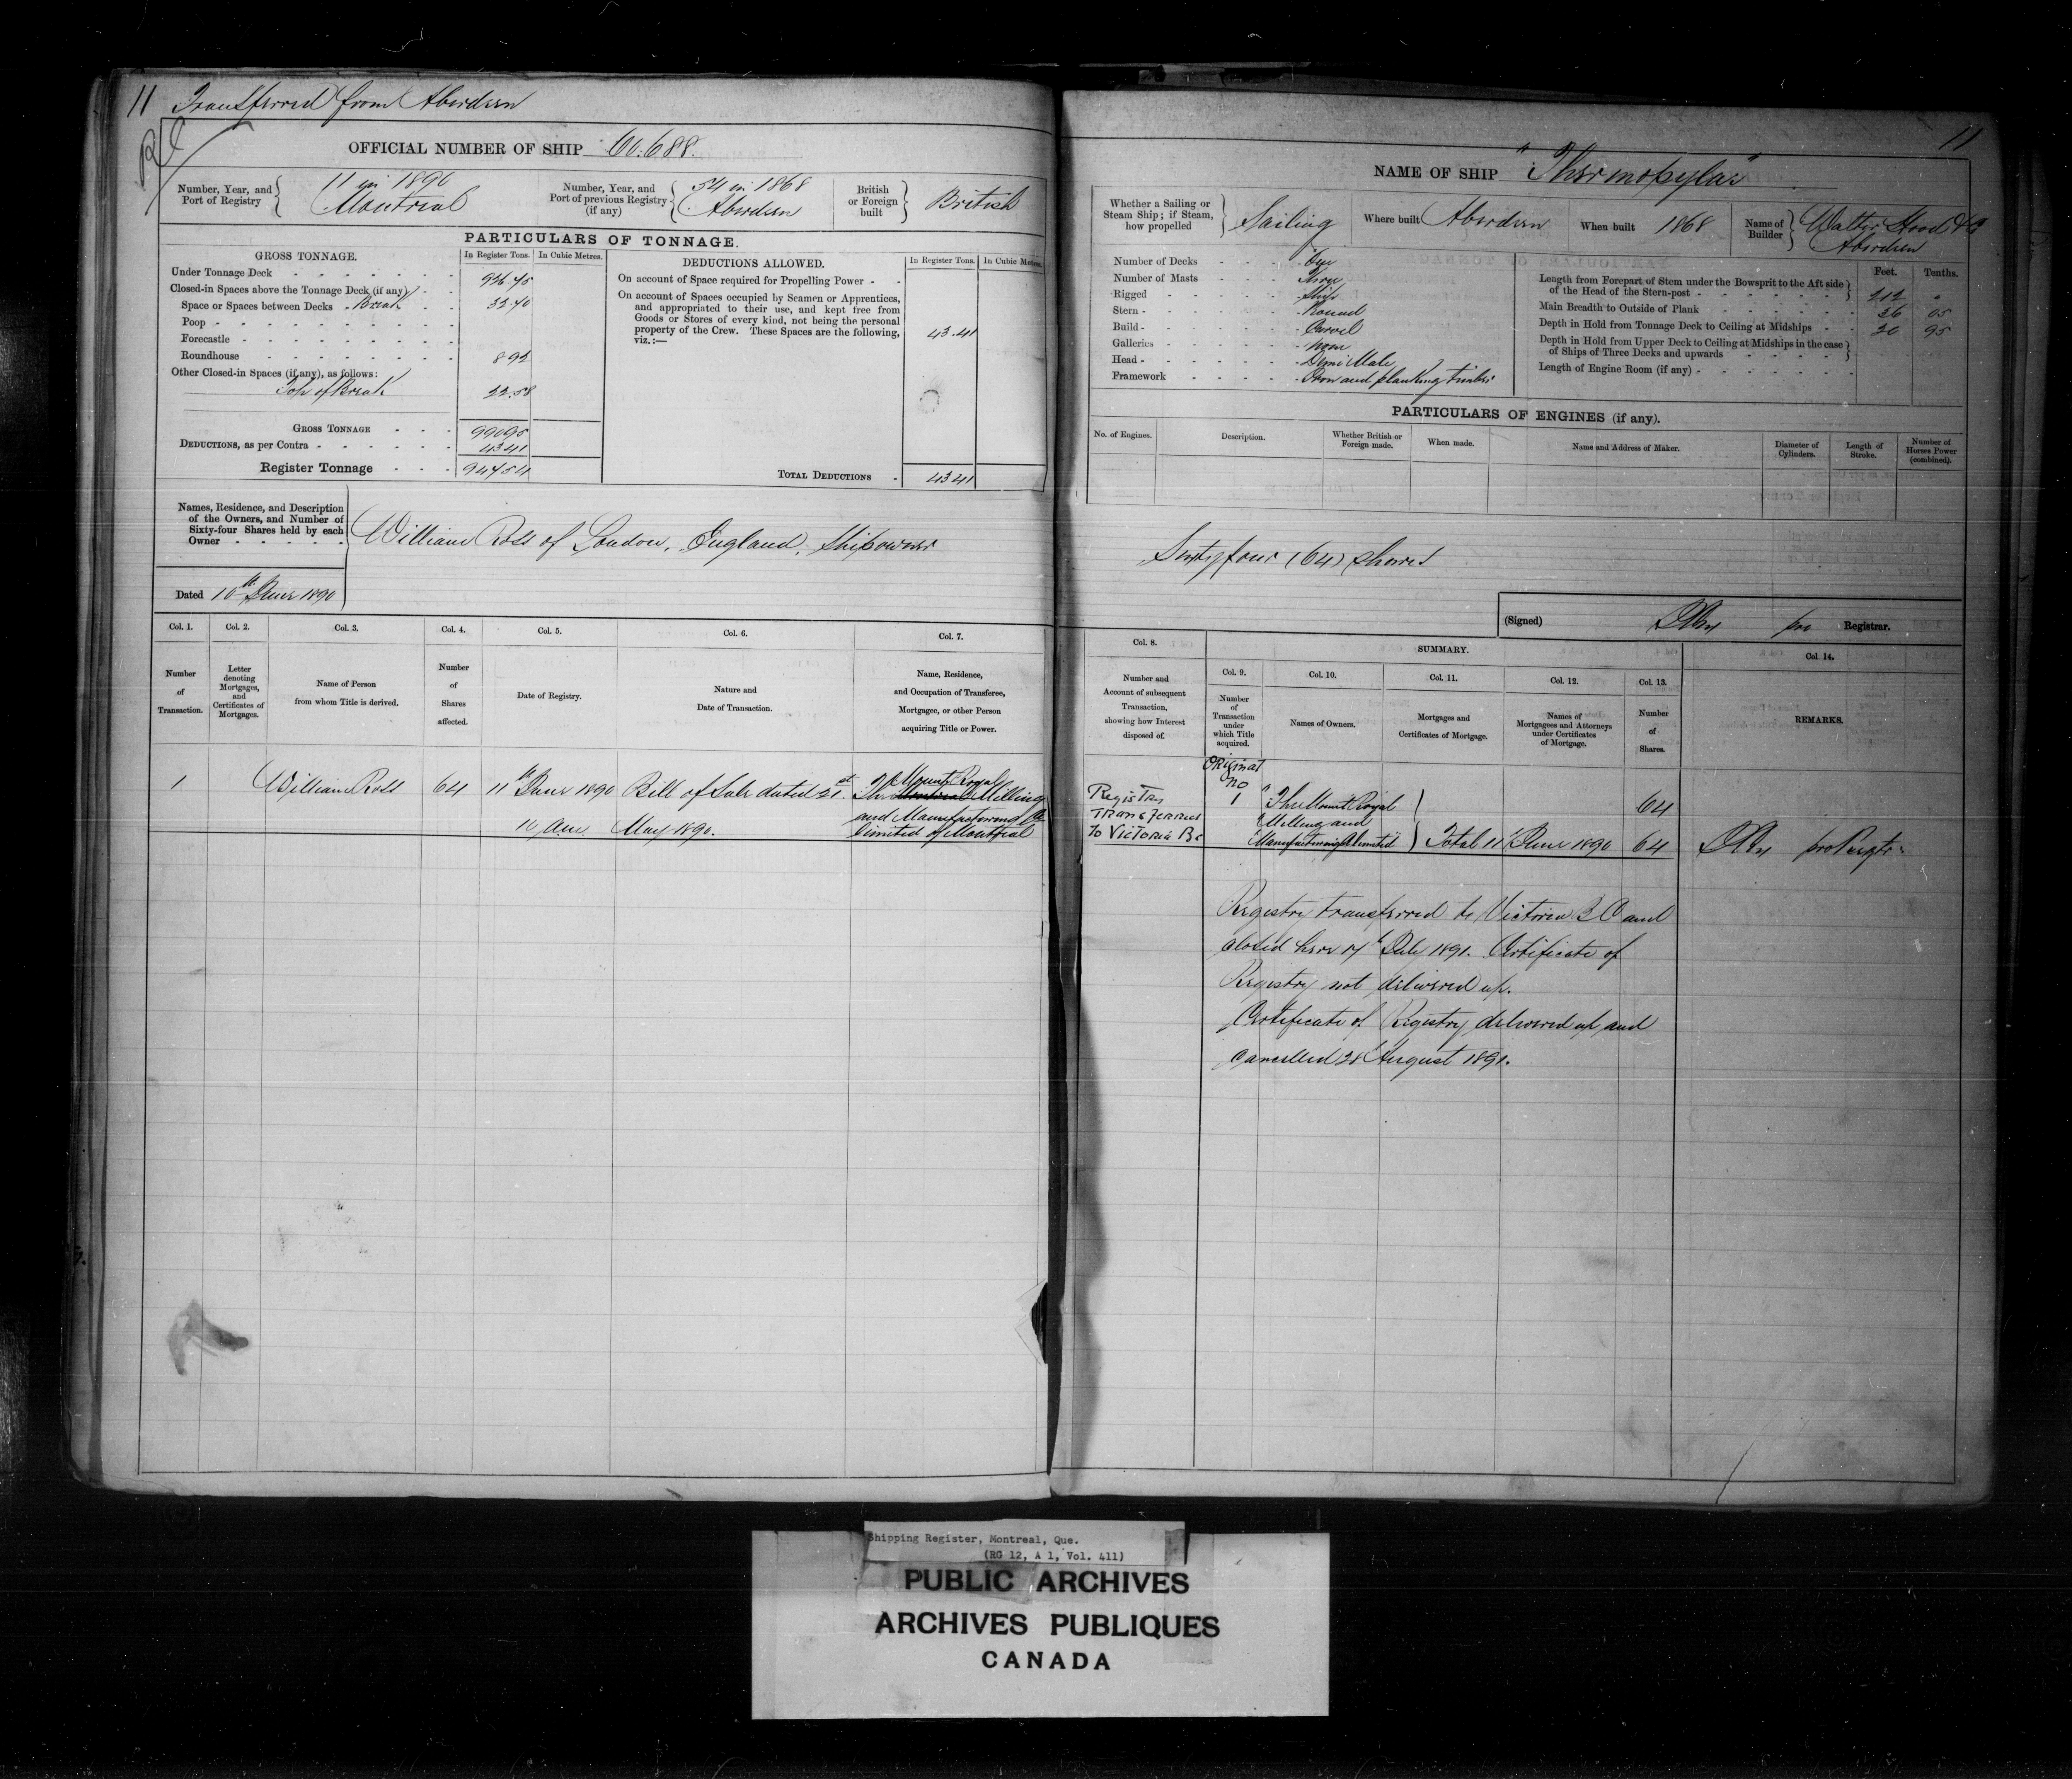 11 Transferred from Aberdeen
OFFICIAL NUMBER OF SHIP 60.688.
Number, Year, and Port of Registry 11 in 1890 Montreal
Number, Year, and Port of previous Registry (if any) 54 in 1868 Aberdeen
British or Foreign built British
PARTICULARS OF TONNAGE.
GROSS TONNAGE. In Register Tons. In Cubic Metres.
Under Tonnage Deck 926.45
Closed-in Spaces above the Tonnage Deck (if any)
Space or Spaces between Decks Break 32.40
Poop
Forecastle
Roundhouse 8.92
Other Closed-in Spaces (if any), as follows:
Top of Break 22.58
GROSS TONNAGE 990.95
DEDUCTIONS, as per Contra 43.41
Register Tonnage 947.54
DEDUCTIONS ALLOWED. In Register Tons. In Cubic Metres.
On account of Space required for Propelling Power
On account of Spaces occupied by Seamen or Apprentices,
and appropriated to their use, and kept free from
Goods or Stores of every kind, not being the personal
property of the Crew. These Spaces are the following,
viz.:— 43.41
TOTAL DEDUCTIONS 43.41
Names, Residence, and Description
of the Owners, and Number of
Sixty-four Shares held by each
Owner
William Ross of London, England, Shipowner
Dated 10th June 1890
Col. 1. Col. 2. Col. 3. Col. 4. Col. 5. Col. 6. Col. 7.
Number of Transaction.
Letter denoting Mortgages, and Certificates of Mortgages.
Name of Person from whom Title is derived.
Number of Shares affected.
Date of Registry.
Nature and Date of Transaction.
Name, Residence, and Occupation of Transferee, Mortgagee, or other Person acquiring Title or Power.
1 William Ross 64 11th June 1890 Bill of Sale dated 21st The Mount Royal Milling
10 am May 1890. and Manufacturing Co
limited of Montreal
11
NAME OF SHIP "Thermopylae"
Whether a Sailing or Steam Ship; if Steam, how propelled Sailing
Where built Aberdeen
When built 1868
Name of Builder Walter Hood & Co Aberdeen
Number of Decks One
Number of Masts Three
Rigged Ship
Stern Round
Build Carvel
Galleries none
Head Demi Male
Framework Iron and planking timber
Feet. Tenths.
Length from Forepart of Stem under the Bowsprit to the Aft side
of the Head of the Stern-post 212 "
Main Breadth to Outside of Plank 36 05
Depth in Hold from Tonnage Deck to Ceiling at Midships 20 95
Depth in Hold from Upper Deck to Ceiling at Midships in the case
of Ships of Three Decks and upwards
Length of Engine Room (if any)
PARTICULARS OF ENGINES (if any).
No. of Engines. Description. Whether British or Foreign made. When made. Name and Address of Maker. Diameter of Cylinders. Length of Stroke. Number of Horses Power (combined).
Sixty four (64) shares
(Signed) pro Registrar.
Col. 8. SUMMARY. Col. 14.
Col. 9. Col. 10. Col. 11. Col. 12. Col. 13.
Number and Account of subsequent Transaction, showing how Interest disposed of.
Number of Transaction under which Title acquired.
Names of Owners.
Mortgages and Certificates of Mortgage.
Names of Mortgagees and Attorneys under Certificates of Mortgage.
Number of Shares.
REMARKS.
Registry Transferred To Victoria BC
Original No 1
The Mount Royal 64
Milling and
Manufacturing Co limited Total 11 June 1890 64 pro Regtr
Registry transferred to Victoria B C and
closed here 17 July 1891. Certificate of
Registry not delivered up.
Certificate of Registry delivered up and
cancelled 28 August 1891.
Shipping Register, Montreal, Que.
(RG 12, A 1, Vol. 411)
PUBLIC ARCHIVES
ARCHIVES PUBLIQUES
CANADA